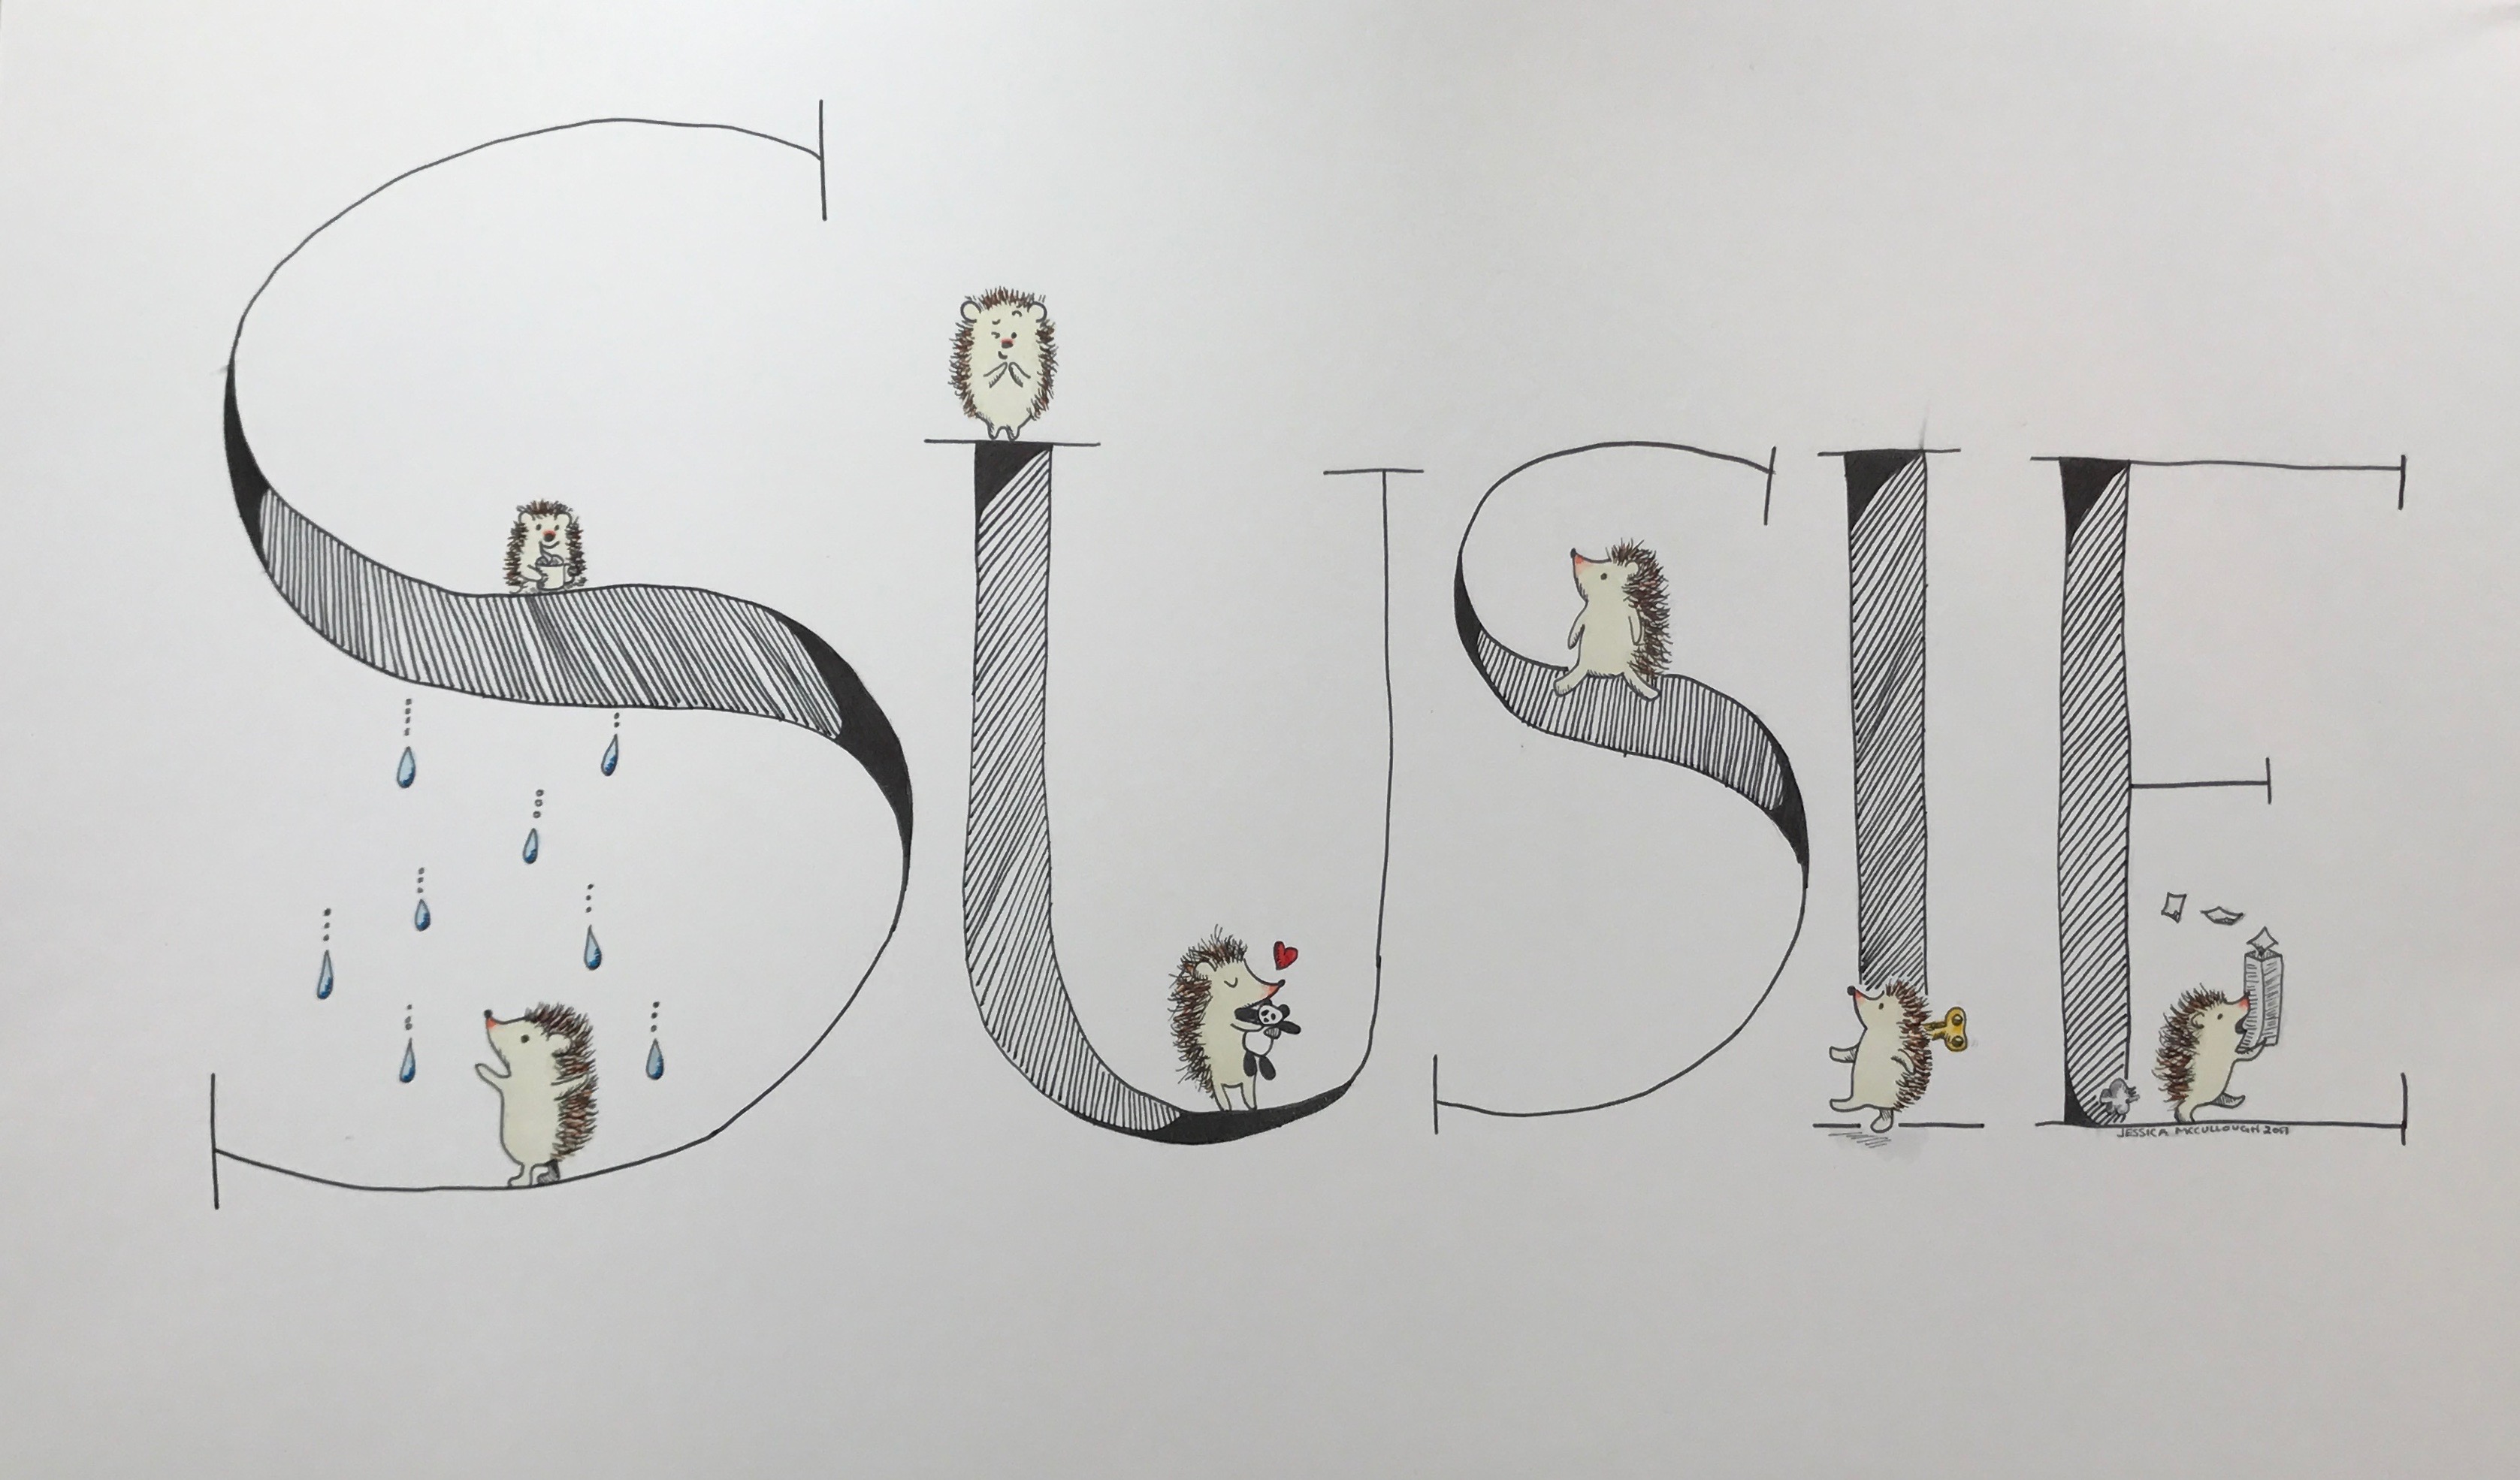 SUSIE
JESSICA MCCULLOUGH 2017